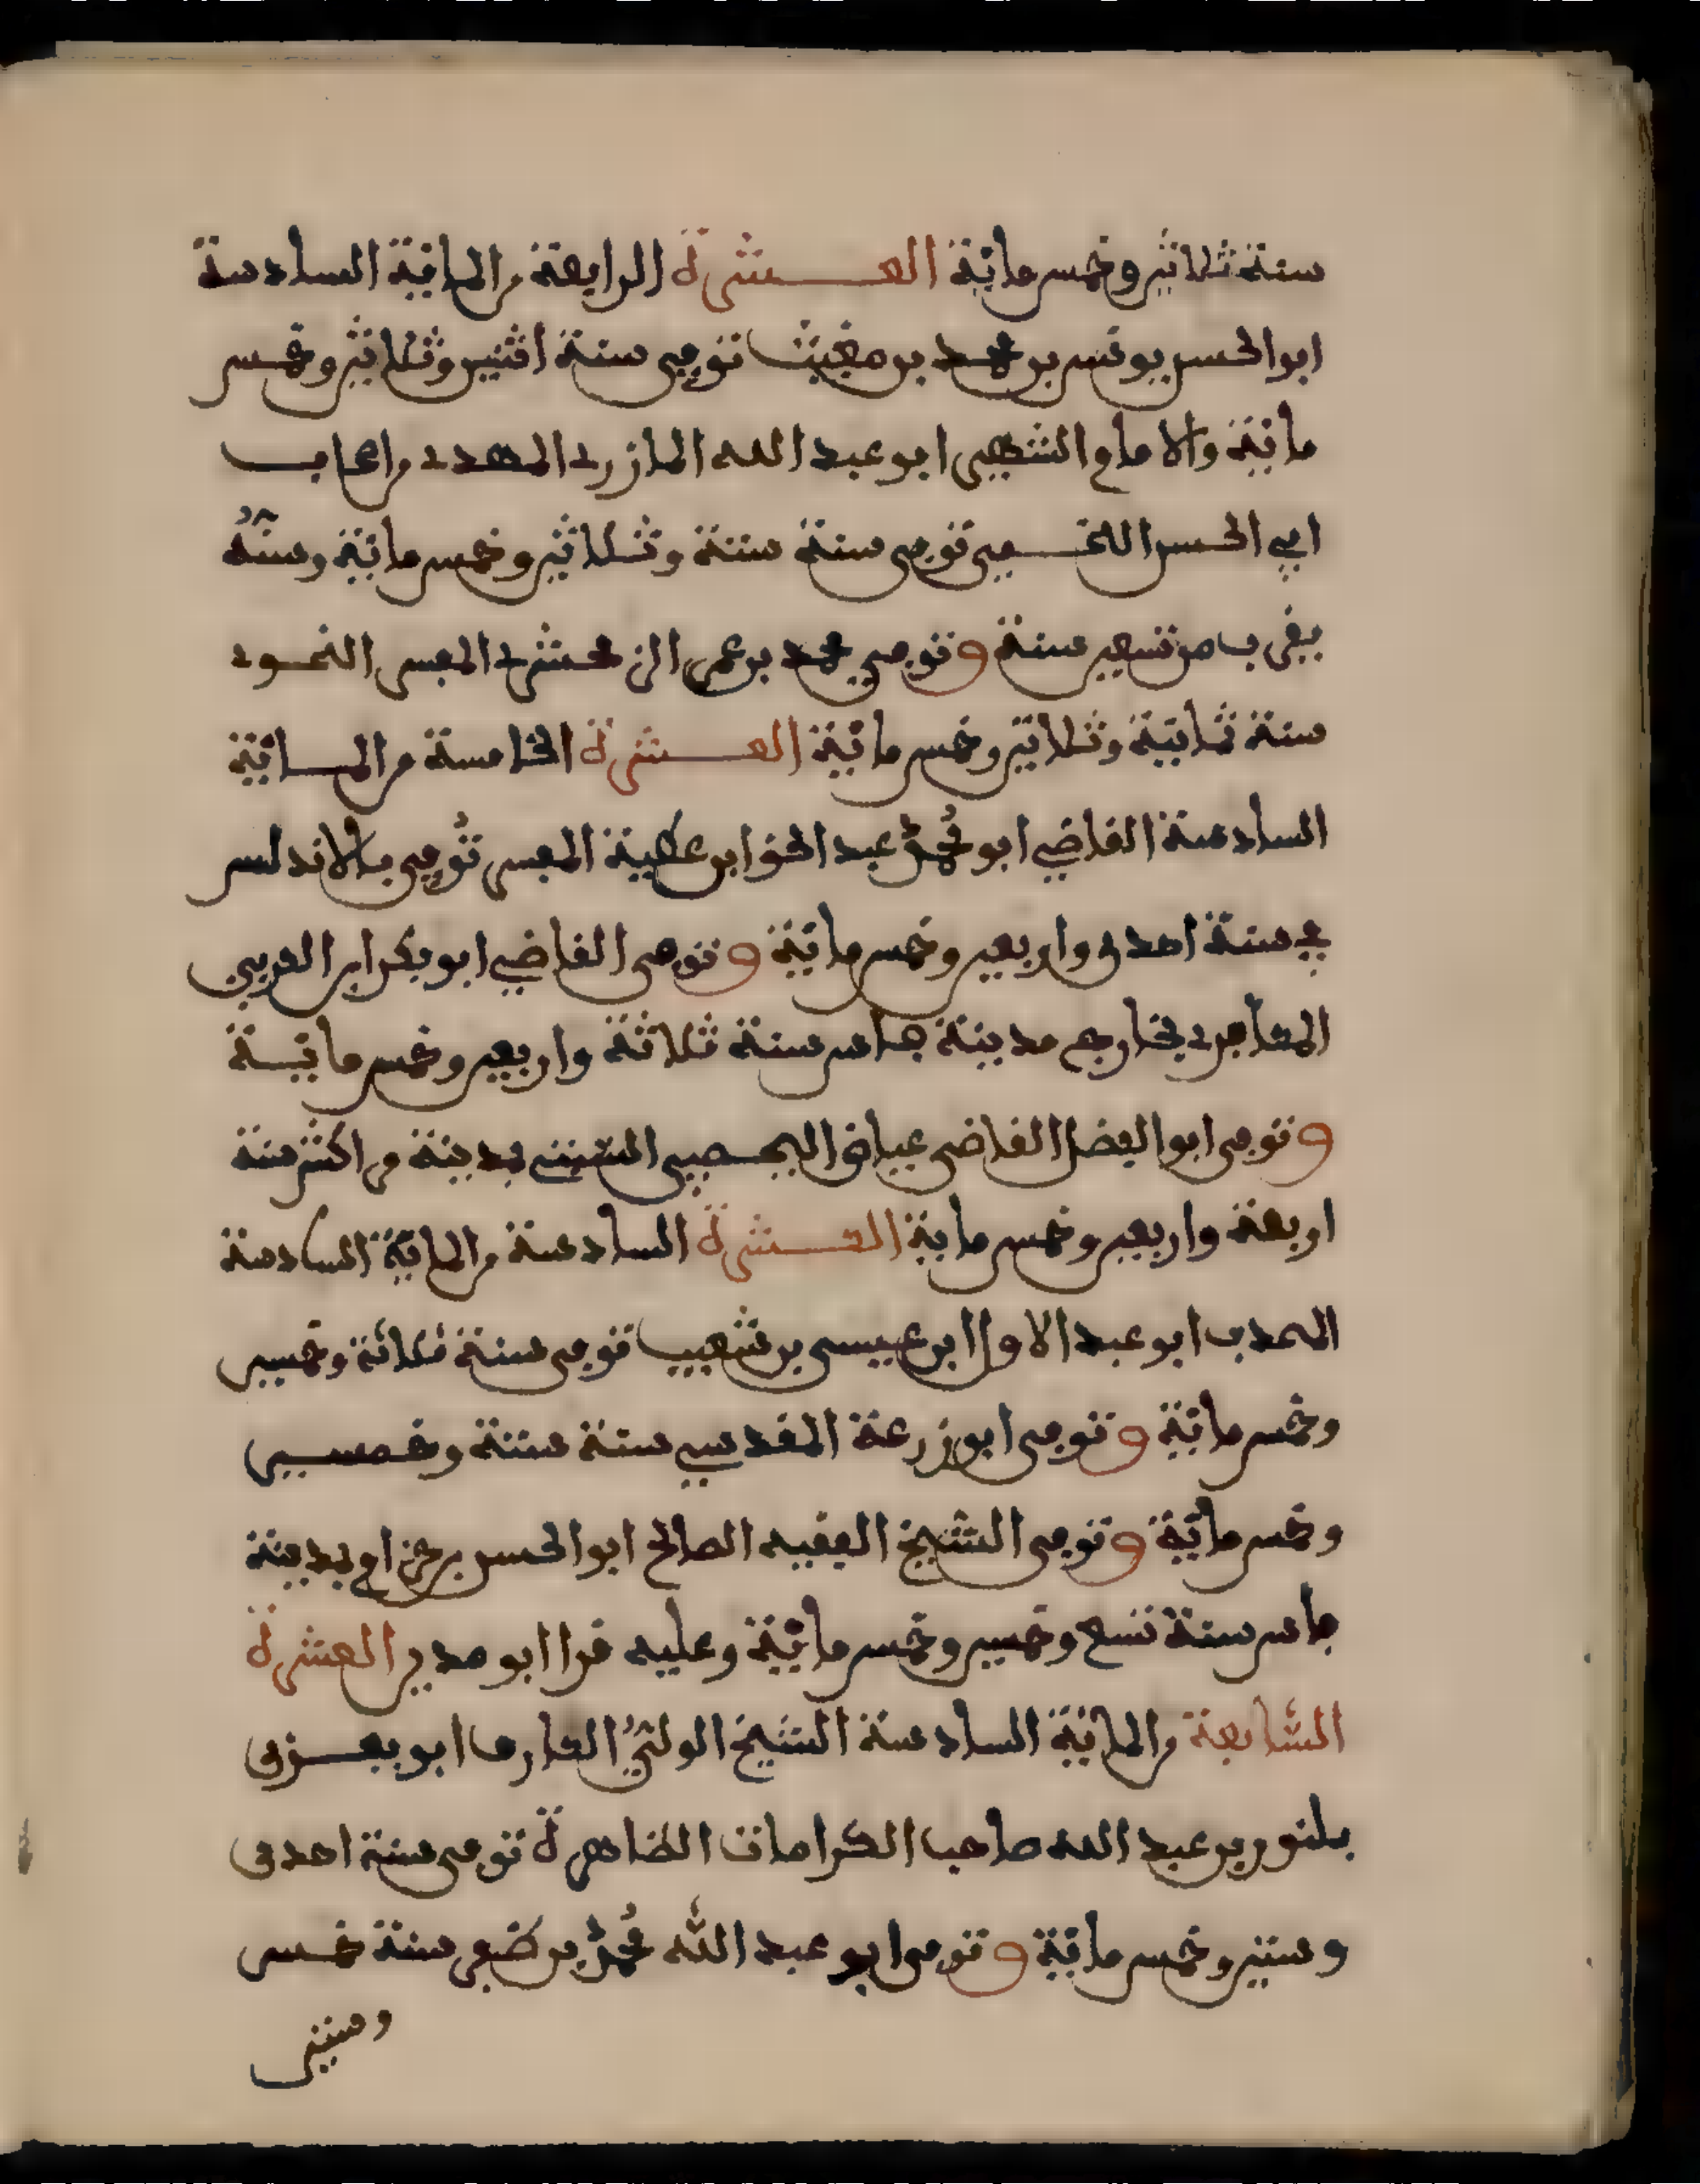 سنة ثلاثين وخمس مائة العشرة الرابعة من المائة السادسة
ابو الحسن يونس بن محمد بن مغيث توفي سنة اثنين وثلاثين وخمس
مائة والامام الشهير ابو عبد الله المازري المهدي من اصحاب
ابي الحسن اللخمي توفي سنة ستة وثلاثين وخمس مائة وسنه
يقرب من تسعين سنة وتوفي محمد بن عمر الزمخشري المفسر النحوي
سنة ثمانية وثلاثين وخمس مائة العشرة الخامسة من المائة
السادسة القاضي ابو محمد عبد الحق ابن عطية المفسر توفي بالاندلس
في سنة احدى واربعين وخمس مائة وتوفي القاضي ابو بكر ابن العربي
المعافري بخارج مدينة فاس سنة ثلاثة واربعين وخمس مائة
وتوفي ابو الفضل القاضي عياض اليحصبي السبتي بمدينة مراكش سنة
اربعة واربعين وخمس مائة العشرة السادسة من المائة السادسة
المحدث ابو عبد الاول ابن عيسى بن شعيب توفي سنة ثلاثة وخمسين
وخمس مائة وتوفي ابو زرعة المقدسي سنة ستة وخمسين
وخمس مائة وتوفي الشيخ الفقيه الصالح ابو الحسن بن حرزاهم بمدينة
فاس سنة تسع وخمسين وخمس مائة وعليه قرا ابو مدين العشرة
السابعة من المائة السادسة الشيخ الولي العارف ابو يعزى
يلنور بن عبد الله صاحب الكرامات الظاهرة توفي سنة احدى
وستين وخمس مائة وتوفي ابو عبد الله محمد بن ظفر سنة خمس
وستين